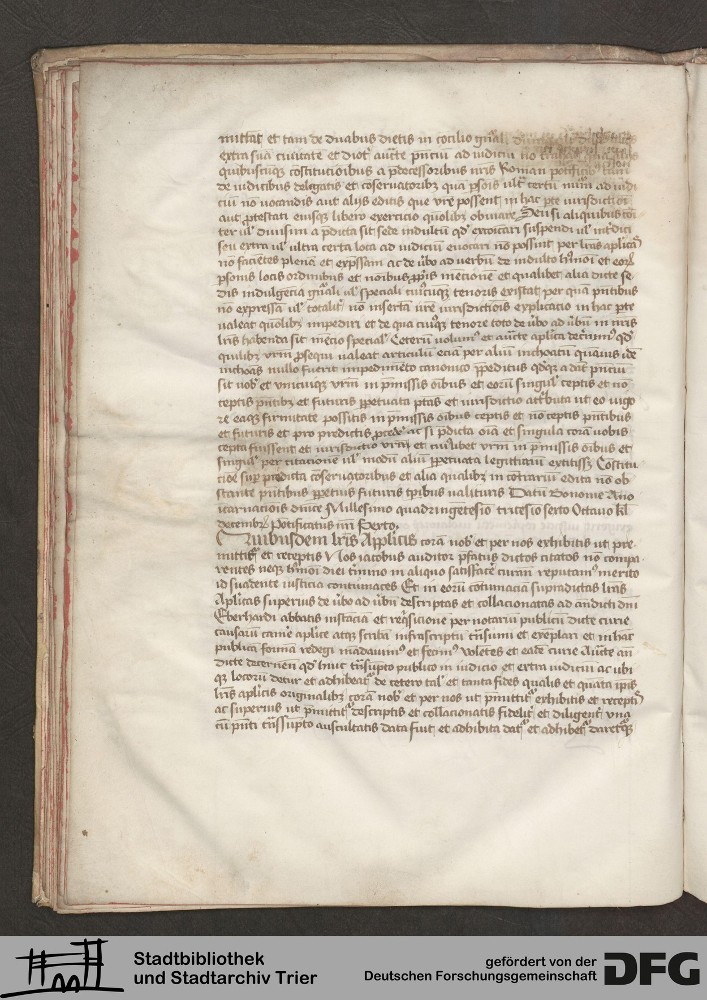 mittat et tam de duabus dietis in cõcilio gñali
extra suã ciuitatẽ et dioc̃ auc̃te p̃nciũ ad iudiciũ nõ
quibuscũqꝫ cõstitucioĩbus a p̃decessoribus nr̃is Roman̄ põtificib
de iudicibus delegatis et cõseruatoribꝫ qua p̃sõis vlt̃ certũ nũm ad iudi
ciũ nõ uocandis aut alijs editis que vr̃e possent in hac p̃te iurisdictiõi
aut p̃testati eiusqꝫ libero exercicio quõlibꝫ obuiare Seu si aliquibus cõi
ter vl̃ diuisim a p̃dicta sit sede indultũ qd̃ excõicari suspendi vl̃ int̃dici
seu extra vl̃ ultra certa loca ad iudiciũ euocari nõ possint per lr̃as aplic̃
nõ faciẽtes plenã et exp̃ssam ac de ũbo ad verbũ de indulto hm̃oi et eoꝝ
p̃sonis locis ordinibus et noĩbus ꝓp̃is mẽcionẽ et qualibet alia dicte se
dis indulgẽcia gñali vl̃ speciali cuiꝰcũqꝫ tenoris existat per quã p̃ntibus
nõ expressã vl̃ totalit̃ nõ insertã vr̃e iurisdictiõis explicacio in hac p̃te
ualeat quõlibꝫ impediri et de qua cuiꝰqꝫ tenore toto de ũbo ad ũbũ in nr̃is
lr̃is habenda sit mẽcio special̃ Ceterũ volumꝰ et auc̃te aplic̃a dec̃nimꝰ qd̃
quilibꝫ vr̃m ꝓsequi ualeat articulũ eciã per aliũ inchoatũ quãuis idẽ
inchoãs nullo fuerit impedimẽto canonico p̃peditus qdqꝫ a dat̃ p̃nciũ
sit uob̃ et unicuiqꝫ vr̃m in p̃missis oĩbus et eorũ singul̃ ceptis et nõ
ceptis p̃ntibꝫ et futuris ꝑpetuata p̃tãs et iurisdictio att̃buta ut eo uigo
re eaqꝫ firmitate possitis in p̃missis oĩbus ceptis et nõ ceptis p̃ntibus
et futuris et pro predictis ꝓcedẽ ac si p̃dicta oĩa et singula corã uobis
cepta fuissent et iurisdictio vr̃m et cuiꝰlibet vr̃m in p̃missis oĩbus et
singul̃ per citacionẽ vl̃ modũ aliũ ꝑpetuata legittimũ extitissꝫ Cõstitu
cioẽ sup̃ predicta cõseruatoribus et alia qualibꝫ in cõtrariũ edita nõ ob
stante p̃ntibus ꝑpetuis futuris tꝑibus ualituris Datũ Bononie Anõ
incarnatiõis dñice Millesimo quadringetesĩo tricesĩo sexto Octauo kl̃
decembꝝ Põtificatus nr̃i Sexto
Quibusdem lr̃is Apl̃icis corã nob̃ et per nos exhibitis ut pre
mittitꝰ et receptis Nos iacobus auditor p̃fatus dictos citatos nõ compa
rentes neqꝫ hm̃oi diei t̃mino in aliquo satisfac̃e curãn̄ reputamꝰ merito
id suadente iusticia contumaces Et in eorũ cõtumaciã supradictas lr̃as
Apl̃icas superius de ũbo ad ũbũ descriptas et collacionatas ad añdicti dñi
Eberhardi abbatis instãciã et req̃sicionẽ per notariũ publicũ dicte curie
causarũ cam̃e aplic̃e atqꝫ scribã infrascriptũ t̃nsumi et exẽplari et in hãc
publicã formã redegi mãdauimꝰ et fecimꝰ Volẽtes et eadẽ curie Auc̃te añ
dicte decernen̄ qd̃ huic t̃nsũpto publico in iudicio et extra iudiciũ ac ubi
qꝫ locorũ detur et adhibeat̃ de cetero tal̃ et tanta fides qualis et quãta ip̃is
lr̃is aplic̃is originalibꝫ corã nob̃ et per nos ut p̃mittit̃ exhibitis et recept̃
ac superius ut p̃mittit̃ descriptis et collacionatis fidelit̃ et diligent̃ vna
cũ p̃nti t̃nssũpto auscultatis data fiut et adhibita dat̃ et adhibet̃ daret̃qꝫ
Stadtbibliothek
und Stadtarchiv Trier
gefördert von der
Deutschen Forschungsgemeinschaft
DFG